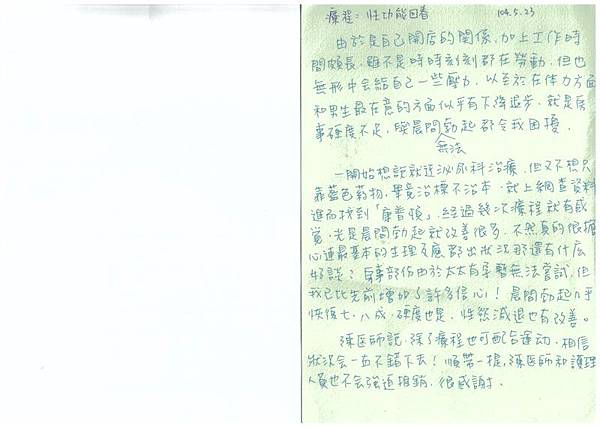 療程：性功能回春 104.5.23
由於是自己開店的關係，加上工作時
間頗長，雖不是時時刻刻都在勞動，但也
無形中會給自己一些壓力，以至於在体力方面
和男生最在意的方面似乎有下降退步，就是房
事硬度不足，與晨間勃起都令我困擾。
無法
一開始想說就近泌尿科治療，但又不想只
靠藍色葯物，畢竟治標不治本，就上網查資料
進而找到「康普頓」，經過幾次療程就有感
覚，光是晨間勃起就改善很多，不然真的很擔
心連最基本的生理反應都出狀況那還有什麼
好談？房事部份由於太太有孕暫無法嘗試，但
我已比先前增加了許多信心！晨間勃起几乎
恢復七、八成，硬度也是，性慾減退也有改善。
陳医師說，除了療程也可配合運動，相信
狀況会一直不錯下去！順帶一提，陳医師和護理
人員也不会強迫推銷，很感謝。